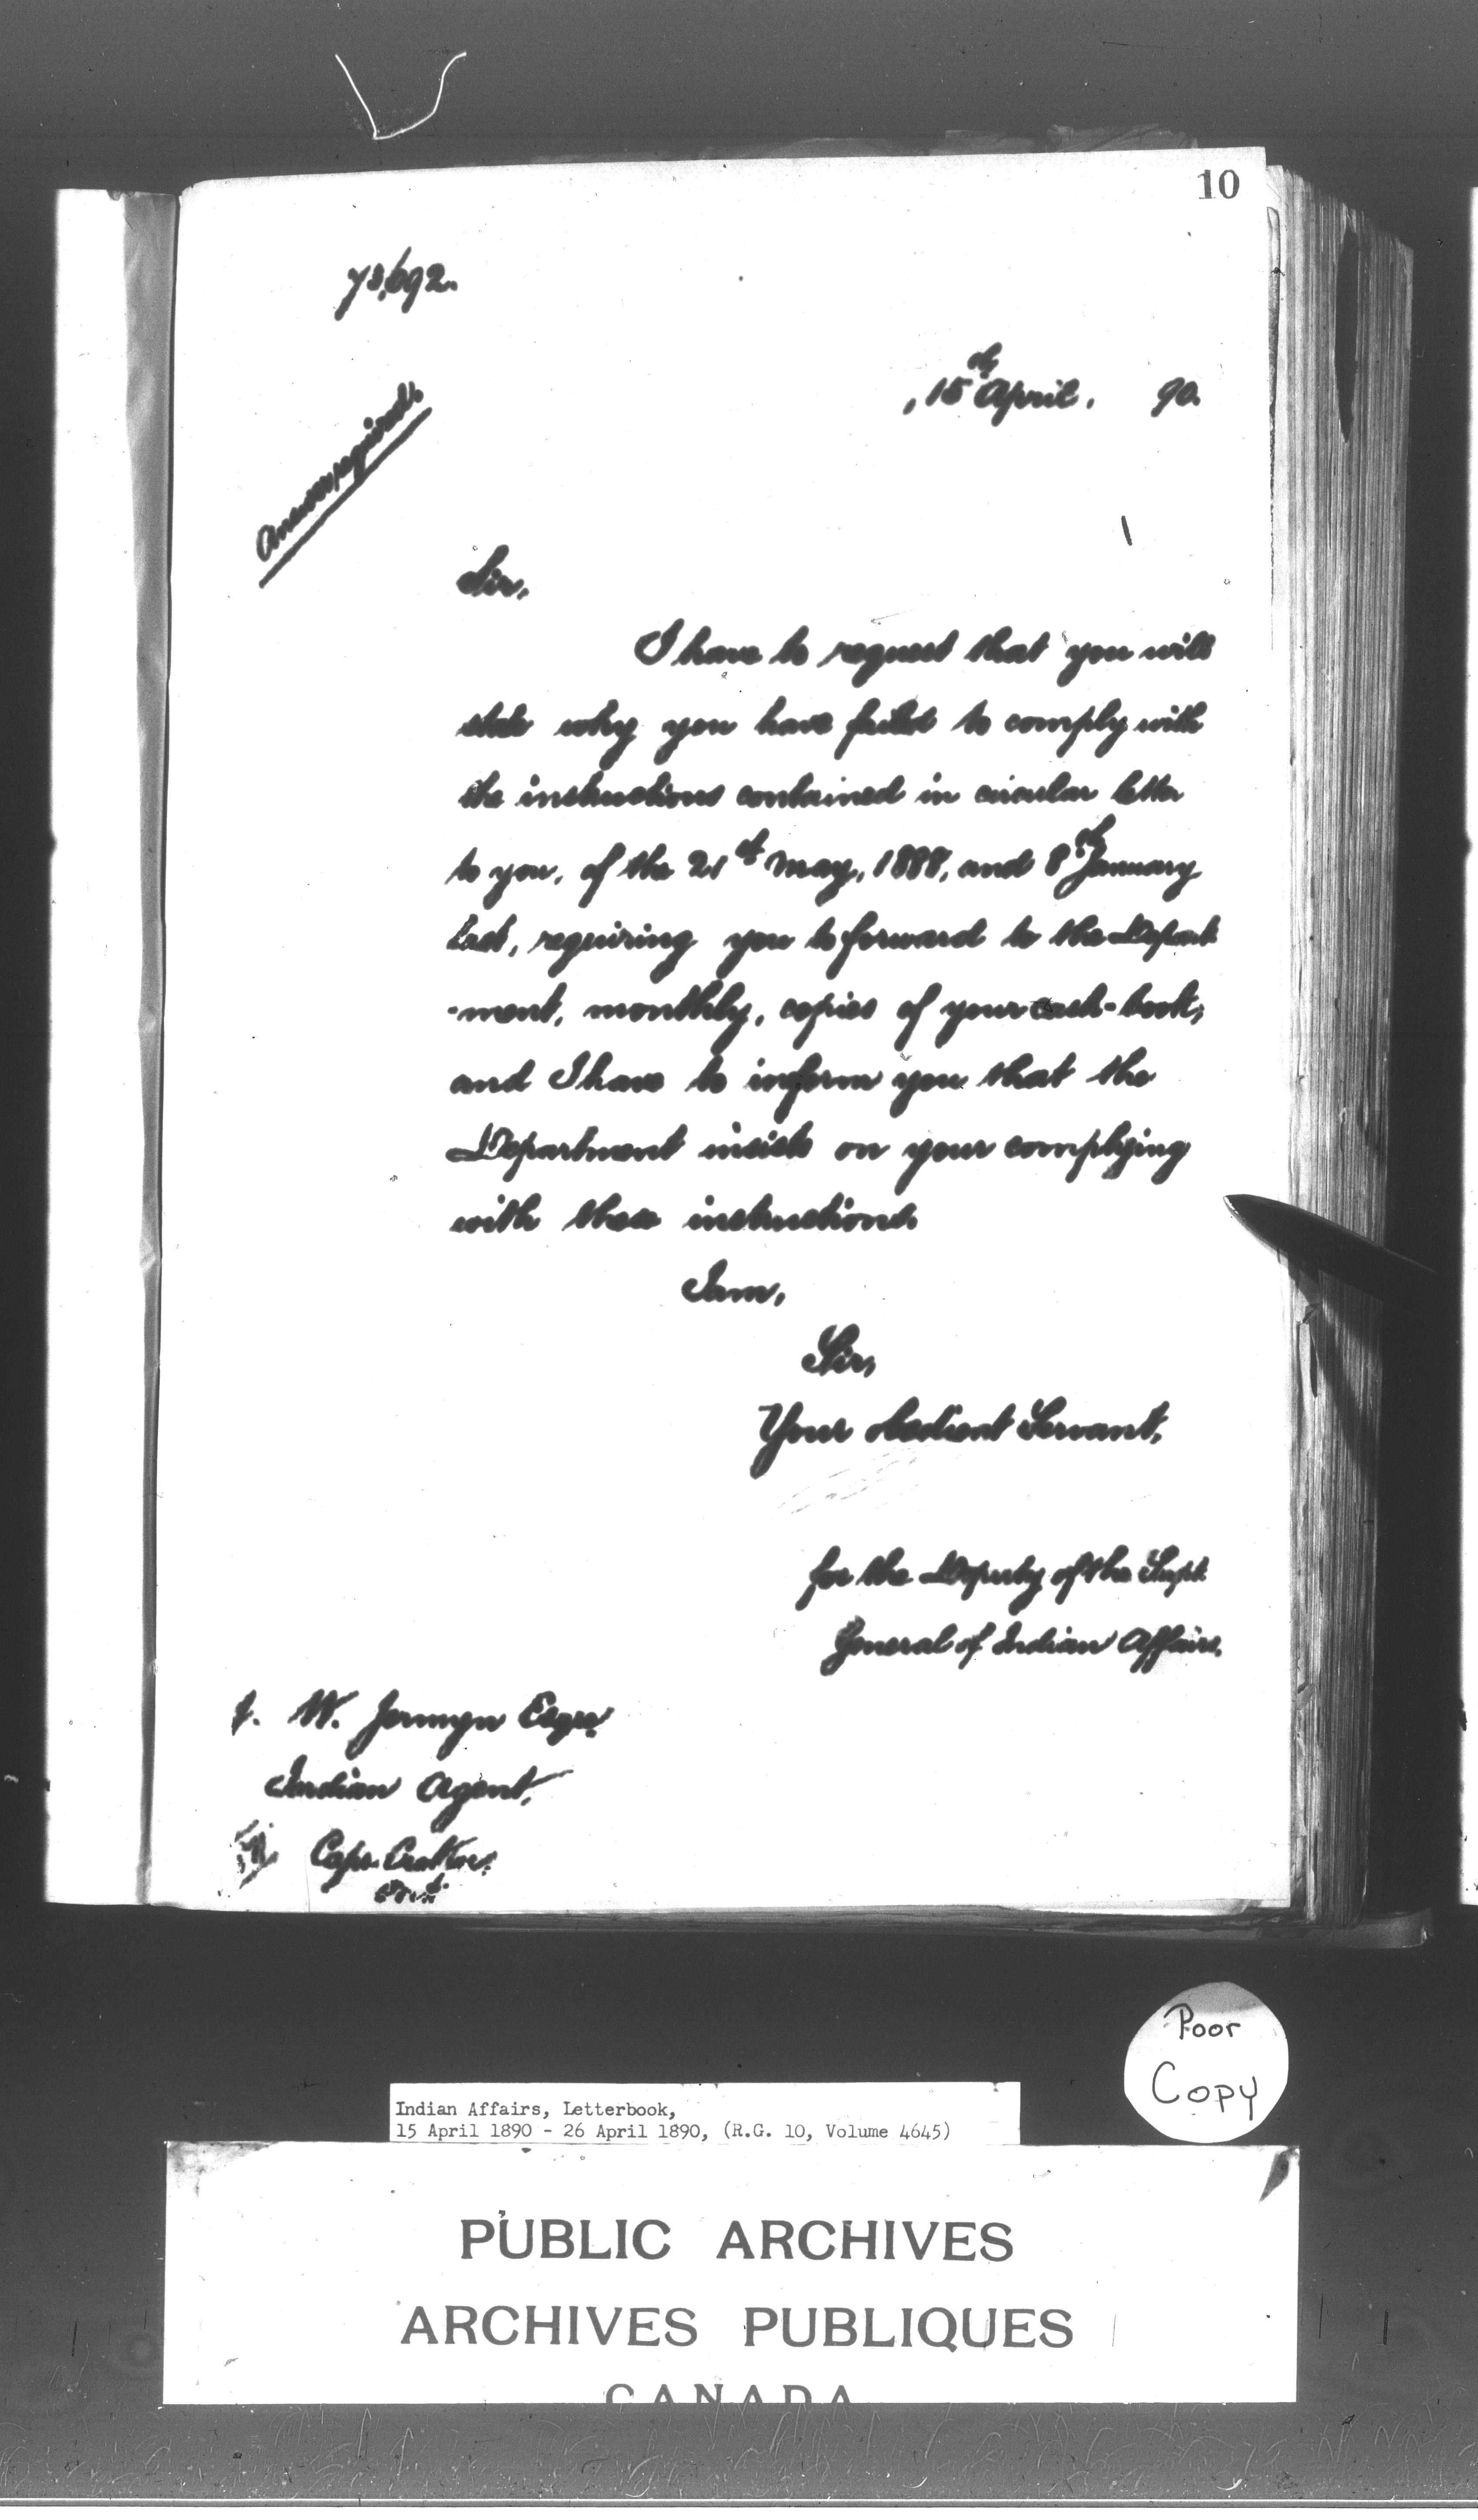 10
73,692.
15th April, 90.
Answer required.
Sir,
I have to request that you will
state why you have failed to comply with
the instructions contained in circular letter
to you, of the 21st May, 1888, and 8th January
last, requiring you to forward to the Depart
-ment, monthly, copies of your cash-book;
and I have to inform you that the
Department insists on your complying
with these instructions.
I am,
Sir,
Your obedient Servant,
for the Deputy of the Supt.
General of Indian Affairs.
J. W. Jermyn Esqre.
Indian Agent,
Cape Croker,
Ont.
Poor
Copy
Indian Affairs, Letterbook,
15 April 1890 - 26 April 1890, (R.G. 10, Volume 4645)
PUBLIC ARCHIVES
ARCHIVES PUBLIQUES
CANADA